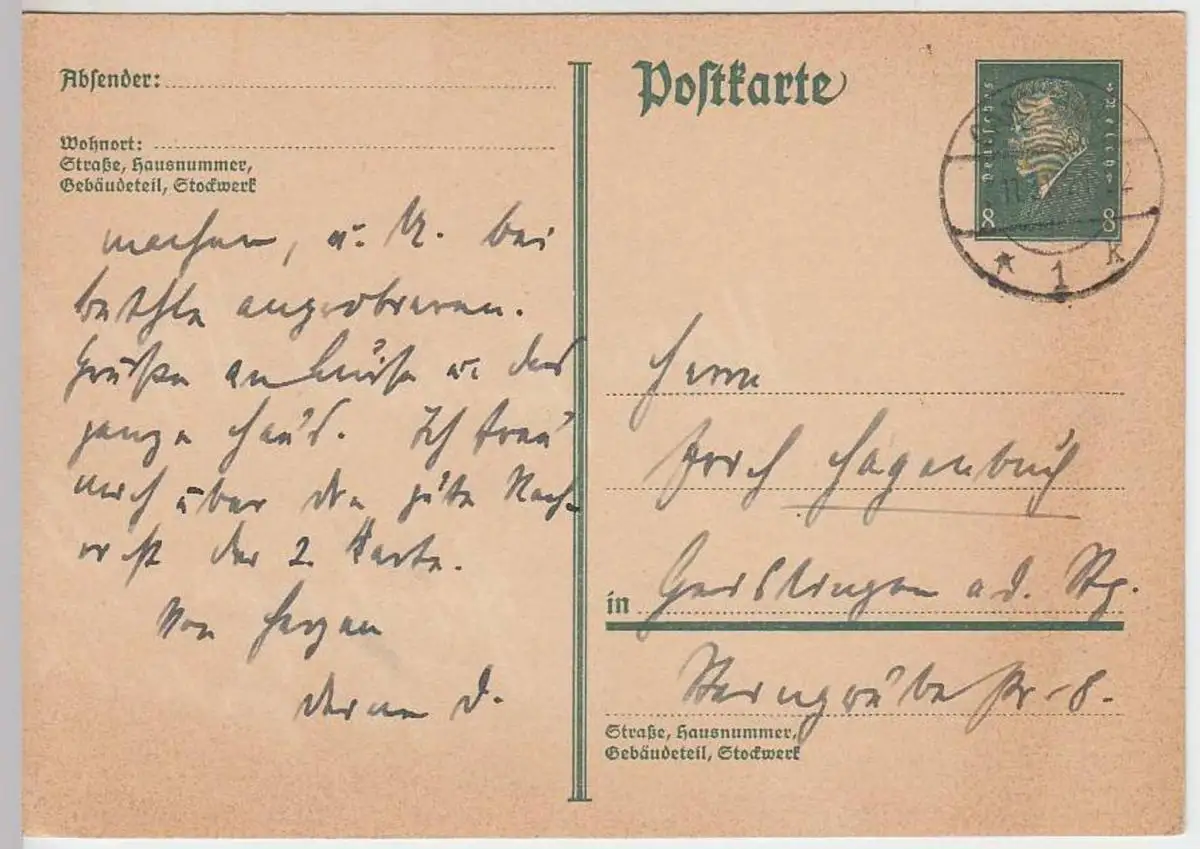 Absender:
Wohnort:
Straße, Hausnummer,
Gebäudeteil, Stockwerk
machen, u. M. bei
anprobieren.
Grüße an Luise u. das
ganze Haus. Ich freu
mich über die gute Nach-
der 2. Karte.
Von Herzen
deine D.
Postkarte
Deutsches Reich
8 8
1 k
Herrn
Erich Hagenbuch
in Geislingen a. d. Stg.
Sterngrube str. 8.
Straße, Hausnummer,
Gebäudeteil, Stockwerk